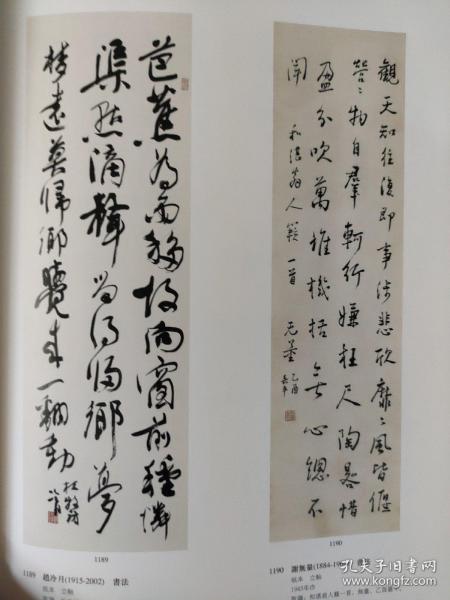 芭蕉為雨移故向窗前種憐
渠點滴聲留得歸鄉夢
夢遠莫歸鄉覺來一翻動
杜牧詩
冷月
1189
1189 趙冷月(1915-2002) 書法
紙本 立軸
觀天知往復即事涉悲欣靡〻風皆偃
營〻物自羣行嫌枉尺陶晷惜
盈分吹萬推機括無心總不
聞 和湛翁人籟一首 无量 乙酉
1190
1190 謝無量(1884-
紙本 立軸
1945年作
孔夫子旧书网